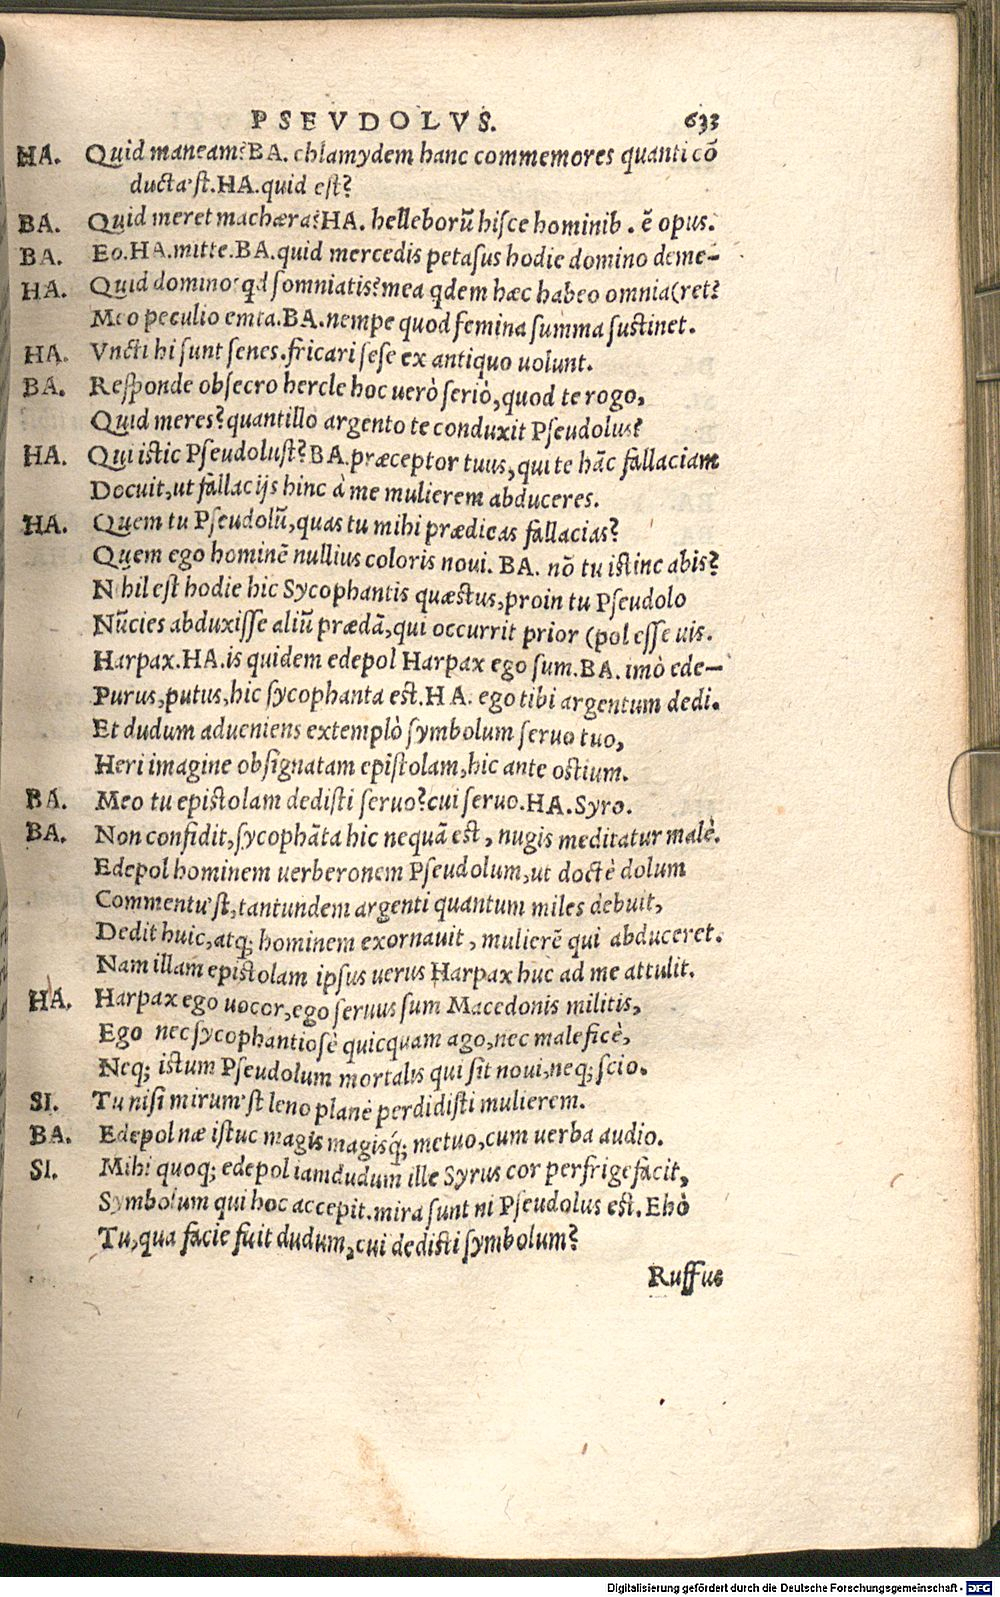 PSEVDOLVS. 633
HA. Quid maneam? BA. chlamydem hanc commemores quanti cõ
ducta'st. HA. quid est?
BA. Quid meret machæra? HA. helleborũ hisce hominib. ẽ opus.
BA. Eo. HA. mitte. BA. quid mercedis petasus hodie domino deme-
HA. Quid domino? qd somniatis? mea qdem hæc habeo omnia (ret?
Meo peculio emta. BA. nempe quod femina summa sustinet.
HA. Vncti hi sunt senes. fricari sese ex antiquo uolunt.
BA. Responde obsecro hercle hoc uerò seriò, quod te rogo,
Quid meres? quantillo argento te conduxit Pseudolus?
HA. Qui istic Pseudolust? BA. præceptor tuus, qui te hãc fallaciam
Docuit, ut fallacijs hinc à me mulierem abduceres.
HA. Quem tu Pseudolũ, quas tu mihi prædicas fallacias?
Quem ego hominẽ nullius coloris noui. BA. nõ tu istinc abis?
Nihil est hodie hic Sycophantis quæstus, proin tu Pseudolo
Nũcies abduxisse aliũ prædã, qui occurrit prior (pol esse uis.
Harpax. HA. is quidem edepol Harpax ego sum. BA. imò ede-
Purus, putus, hic sycophanta est. HA. ego tibi argentum dedi.
Et dudum adueniens extemplò symbolum seruo tuo,
Heri imagine obsignatam epistolam, hic ante ostium.
BA. Meo tu epistolam dedisti seruo? cui seruo. HA. Syro.
BA. Non confidit, sycophãta hic nequã est, nugis meditatur malè.
Edepol hominem uerberonem Pseudolum, ut doctè dolum
Commentu'st, tantundem argenti quantum miles debuit,
Dedit huic, atq; hominem exornauit, mulierẽ qui abduceret.
Nam illam epistolam ipsus uerus Harpax huc ad me attulit.
HA. Harpax ego uocor, ego seruus sum Macedonis militis,
Ego nec sycophantiosè quicquam ago, nec maleficè,
Neq; istum Pseudolum mortalis qui sit noui, neq; scio.
SI. Tu nisi mirum'st leno planè perdidisti mulierem.
BA. Edepol næ istuc magis magisq́; metuo, cum uerba audio.
SI. Mihi quoq; edepol iamdudum ille Syrus cor perfrigefacit,
Symbolum qui hoc accepit. mira sunt ni Pseudolus est. Ehò
Tu, qua facie fuit dudum, cui dedisti symbolum?
Ruffus
Digitalisierung gefördert durch die Deutsche Forschungsgemeinschaft - DFG